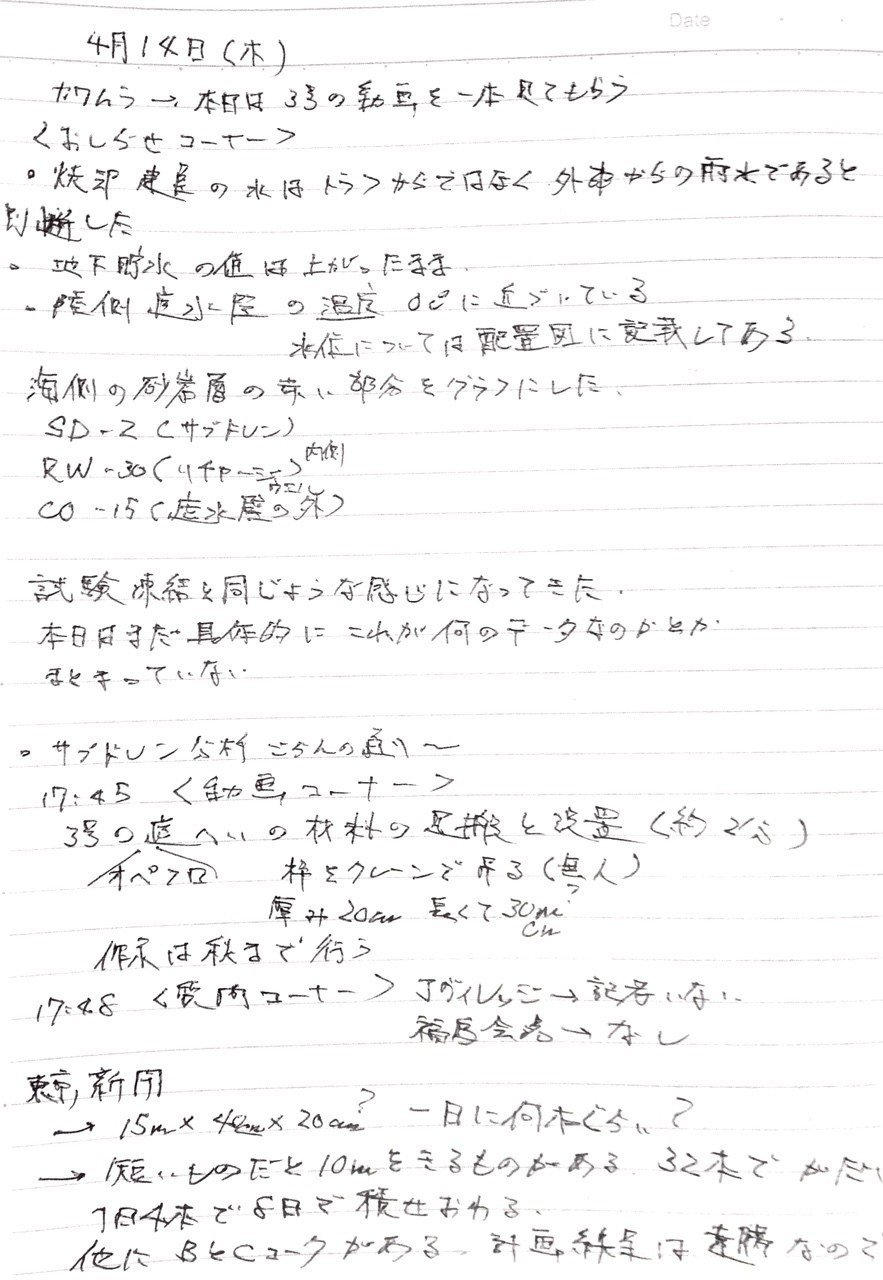 Date
4月14日(木)
カワムラ → 本日は3号の動画を一本見てもらう
<おしらせコーナー>
• 焼却建屋の水はトラフからではなく外車からの雨水であると
判断した
• 地下貯水の値は上がったまま.
• 陸側遮水壁の温度 0℃に近づいている
水位については配置図に記載してある.
海側の砂岩層の赤い部分をグラフにした.
SD-2 (サブドレン)
RW-30(リチャージ) 内側
ウエル
CO-15(遮水壁の外)
試験凍結と同じような感じになってきた.
本日はまだ具体的にこれが何のデータなのかとか
まとまっていない
• サブドレン分析ごらんの通り〜
17:45 <動画コーナー>
3号の遮へいの材料の運搬と設置 (約2分)
オペフロ 枠をクレーンで吊る(無人)?
厚み20cm 長くて30m?
cm
作業は秋まで行う
17:48 <質問コーナー> Jヴィレッジ→記者いない.
福島会場→なし
東京,新聞
→ 15m× 20cm? 一日に何本ぐらい?
→ 短いものだと10mをきるものがある. 32本で
1日4本で8日で積せおわる.
他にBとC がある. 計画 は なので